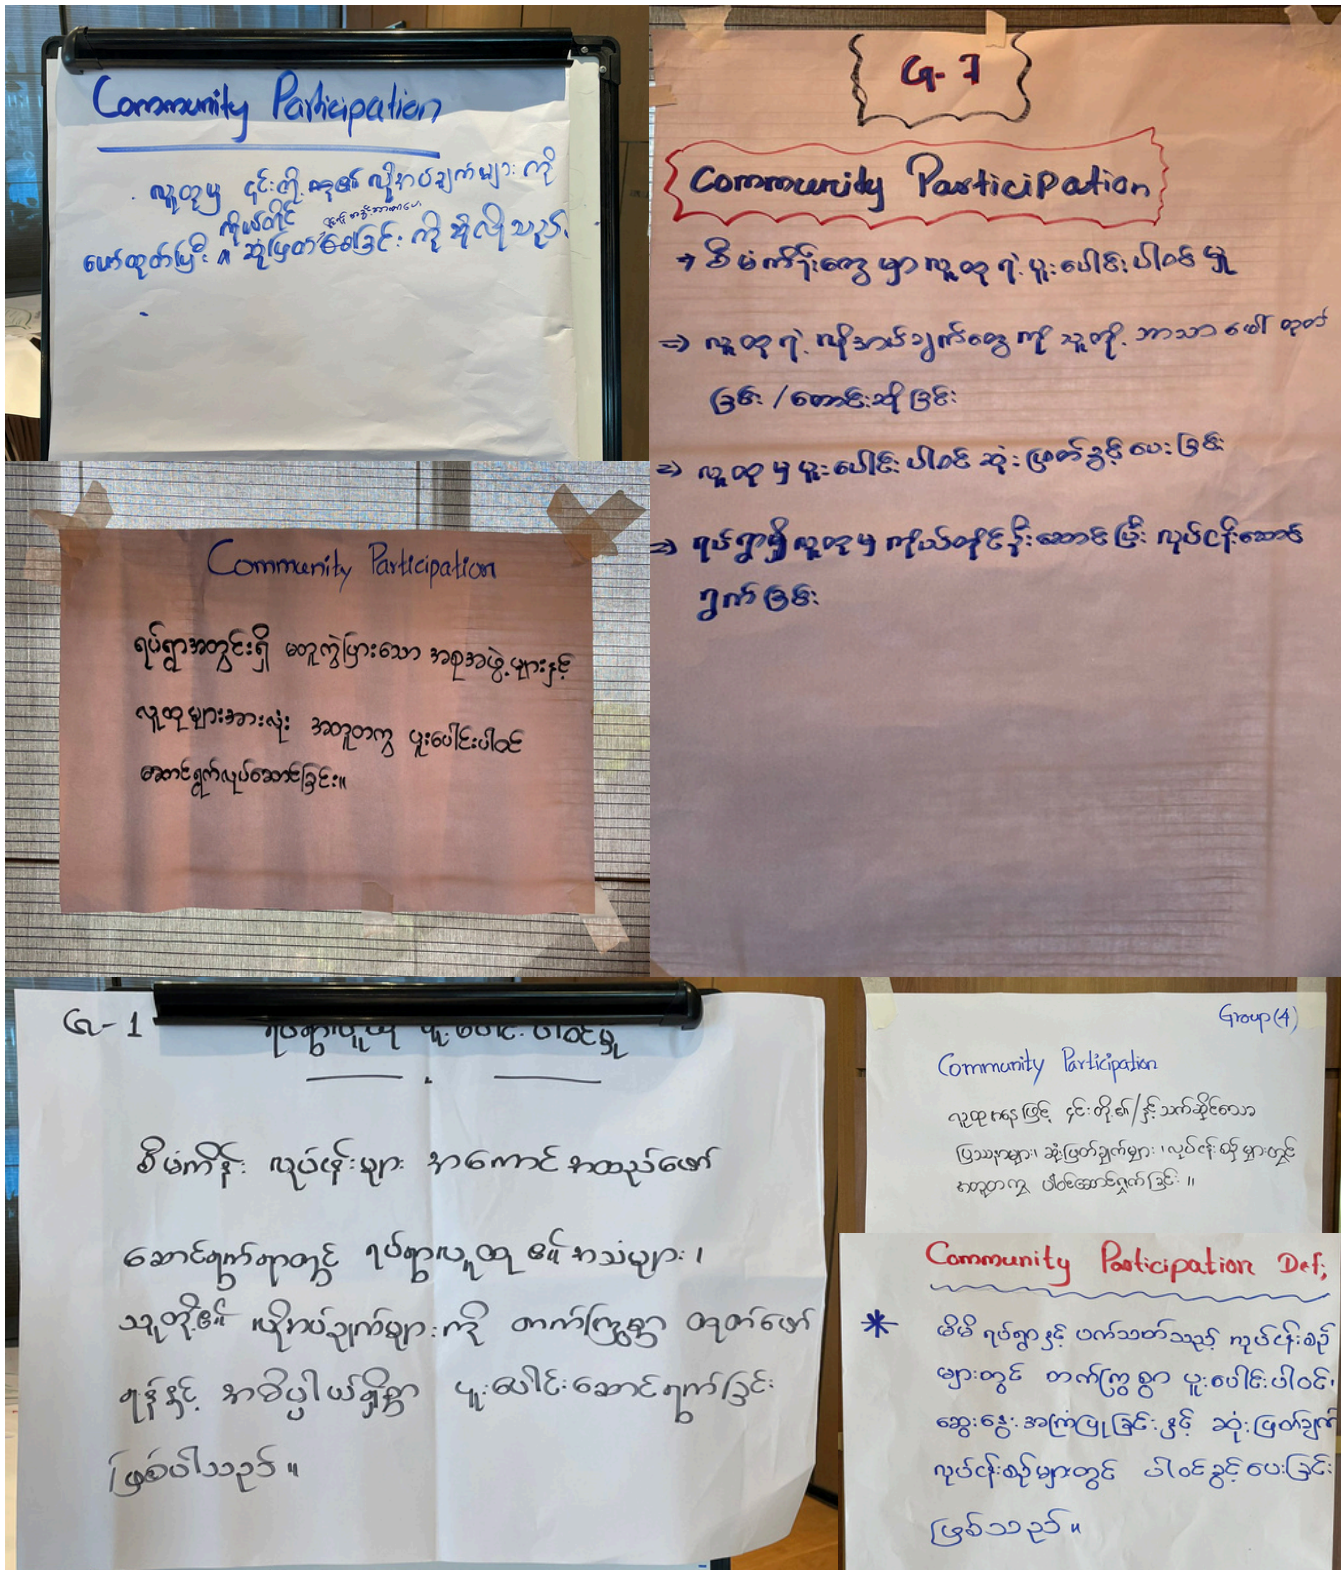 Community Participation
လူထုမှ ၎င်းတို့ဆန္ဒ၏ လိုအပ်ချက်များ ကို
ကိုယ်တိုင်
ဖော်ထုတ်ပြီး ဆုံးဖြတ်စေခြင်း ကို ဆိုလိုသည်.
G-7
Community Participation
→ စီမံကိန်းတွေ မှာ လူထု ရဲ့ ပူးပေါင်း ပါဝင် မှု
⇒ လူထု ရဲ့ လိုအပ်ချက်တွေ ကို သူတို့ ဘာသာ ဖော် ထုတ်
ခြင်း / တောင်းဆို ခြင်း
⇒ လူထု မှ ပူးပေါင်း ပါဝင် ဆုံးဖြတ်ခွင့် ပေး ခြင်း
⇒ ရပ်ရွာရှိ လူထု မှ ကိုယ်တိုင်ဦးဆောင် ပြီး လုပ်ငန်းဆောင်
ရွက် ခြင်း
Community Participation
ရပ်ရွာအတွင်းရှိ မတူကွဲပြားသော အစုအဖွဲ့များနှင့်
လူထုများအားလုံး အတူတကွ ပူးပေါင်းပါဝင်
ဆောင်ရွက်လုပ်ဆောင်ခြင်း။
G-1
ရပ်ရွာလူထု ပူးပေါင်း ပါဝင်မှု
စီမံကိန်း လုပ်ငန်းများ အကောင်အထည်ဖော်
ဆောင်ရွက်ရာတွင် ရပ်ရွာလူထု ၏ အသံများ ၊
သူတို့၏ လိုအပ်ချက်များ ကို တက်ကြွစွာ ထုတ်ဖော်
ရန်နှင့် အဓိပ္ပါယ်ရှိစွာ ပူးပေါင်းဆောင်ရွက်ခြင်း
ဖြစ်ပါသည် ။
Group (4)
Community Participation
လူထုအနေဖြင့် ၎င်းတို့၏/နှင့်သက်ဆိုင်သော
ပြဿနာများ၊ ဆုံးဖြတ်ချက်များ ၊ လုပ်ငန်းစဉ်များတွင်
အတူတကွ ပါဝင်ဆောင်ရွက်ခြင်း ။
Community Participation Def;
* မိမိ ရပ်ရွာနှင့် ပက်သတ်သည့် လုပ်ငန်းစဉ်
များတွင် တက်ကြွစွာ ပူးပေါင်းပါဝင်၊
ဆွေးနွေး အကြံပြုခြင်းနှင့် ဆုံးဖြတ်ချက်
လုပ်ငန်းစဉ်များတွင် ပါဝင်ခွင့်ပေးခြင်း
ဖြစ်သည် ။